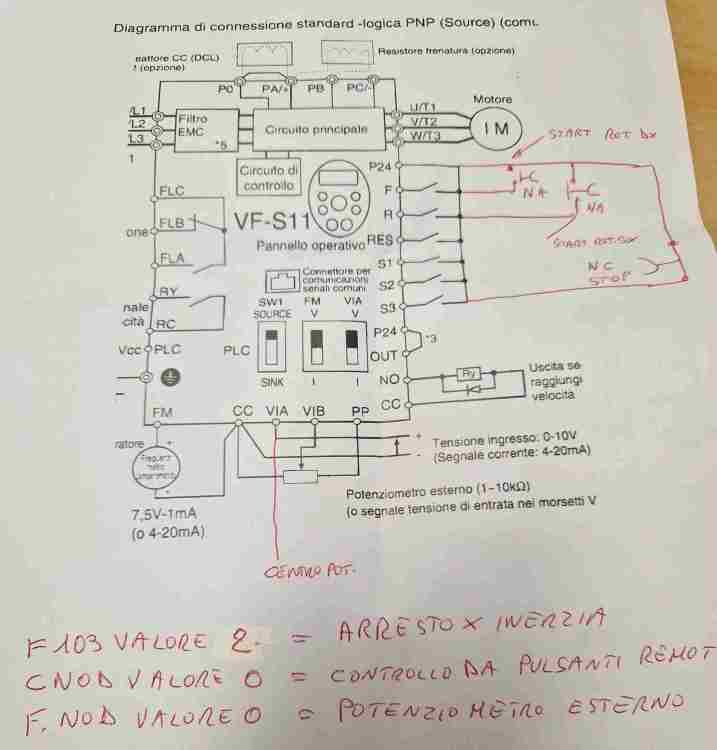 Diagramma di connessione standard -logica PNP (Source) (comu.
eattore CC (DCL)
(opzione)
Resistore frenatura (opzione)
P0 PA/+ PB PC/-
Motore
/L1
/L2
/L3
1
Filtro
EMC
*5
Circuito principale
U/T1
V/T2
W/T3
I M
Circuito di
controllo
P24
START ROT DX
NA
F
R
NA
START ROT. SX
RES
NC
STOP
S1
S2
S3
FLC
FLB
one
FLA
VF-S11
Pannello operativo
Connettore per
comunicazioni
seriali comuni
RY
nale
cità
RC
SW1
SOURCE
FM
V
VIA
V
P24
*3
OUT
Vcc PLC
PLC
SINK
I
I
NO
Ry
CC
Uscita se
raggiungi
velocità
FM
CC VIA VIB PP
ratore
+
-
+
-
Tensione ingresso: 0-10V
(Segnale corrente: 4-20mA)
7,5V-1mA
(o 4-20mA)
Potenziometro esterno (1-10kΩ)
(o segnale tensione di entrata nei morsetti V
CENTRO POT.
F103 VALORE 2. = ARRESTO X INERZIA
CNOD VALORE 0 = CONTROLLO DA PULSANTI REMOT
F. NOD VALORE 0 = POTENZIOMETRO ESTERNO